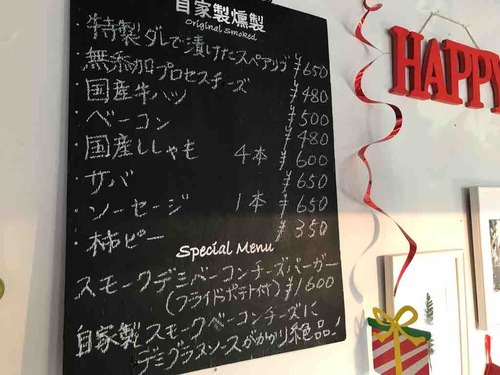 自家製燻製
Original Smoked
・特製ダレで漬けたスペアリブ ¥650
・無添加プロセスチーズ ¥480
・国産牛ハツ ¥500
・ベーコン ¥480
・国産ししゃも 4本 ¥600
・サバ ¥650
・ソーセージ 1本 ¥650
・柿ピー ¥350
Special Menu
スモークデミバーコンチーズバーガー
(フライドポテト付) ¥1600
自家製スモークベーコンチーズに
デミグラスソースがかかり絶品!
HAPPY